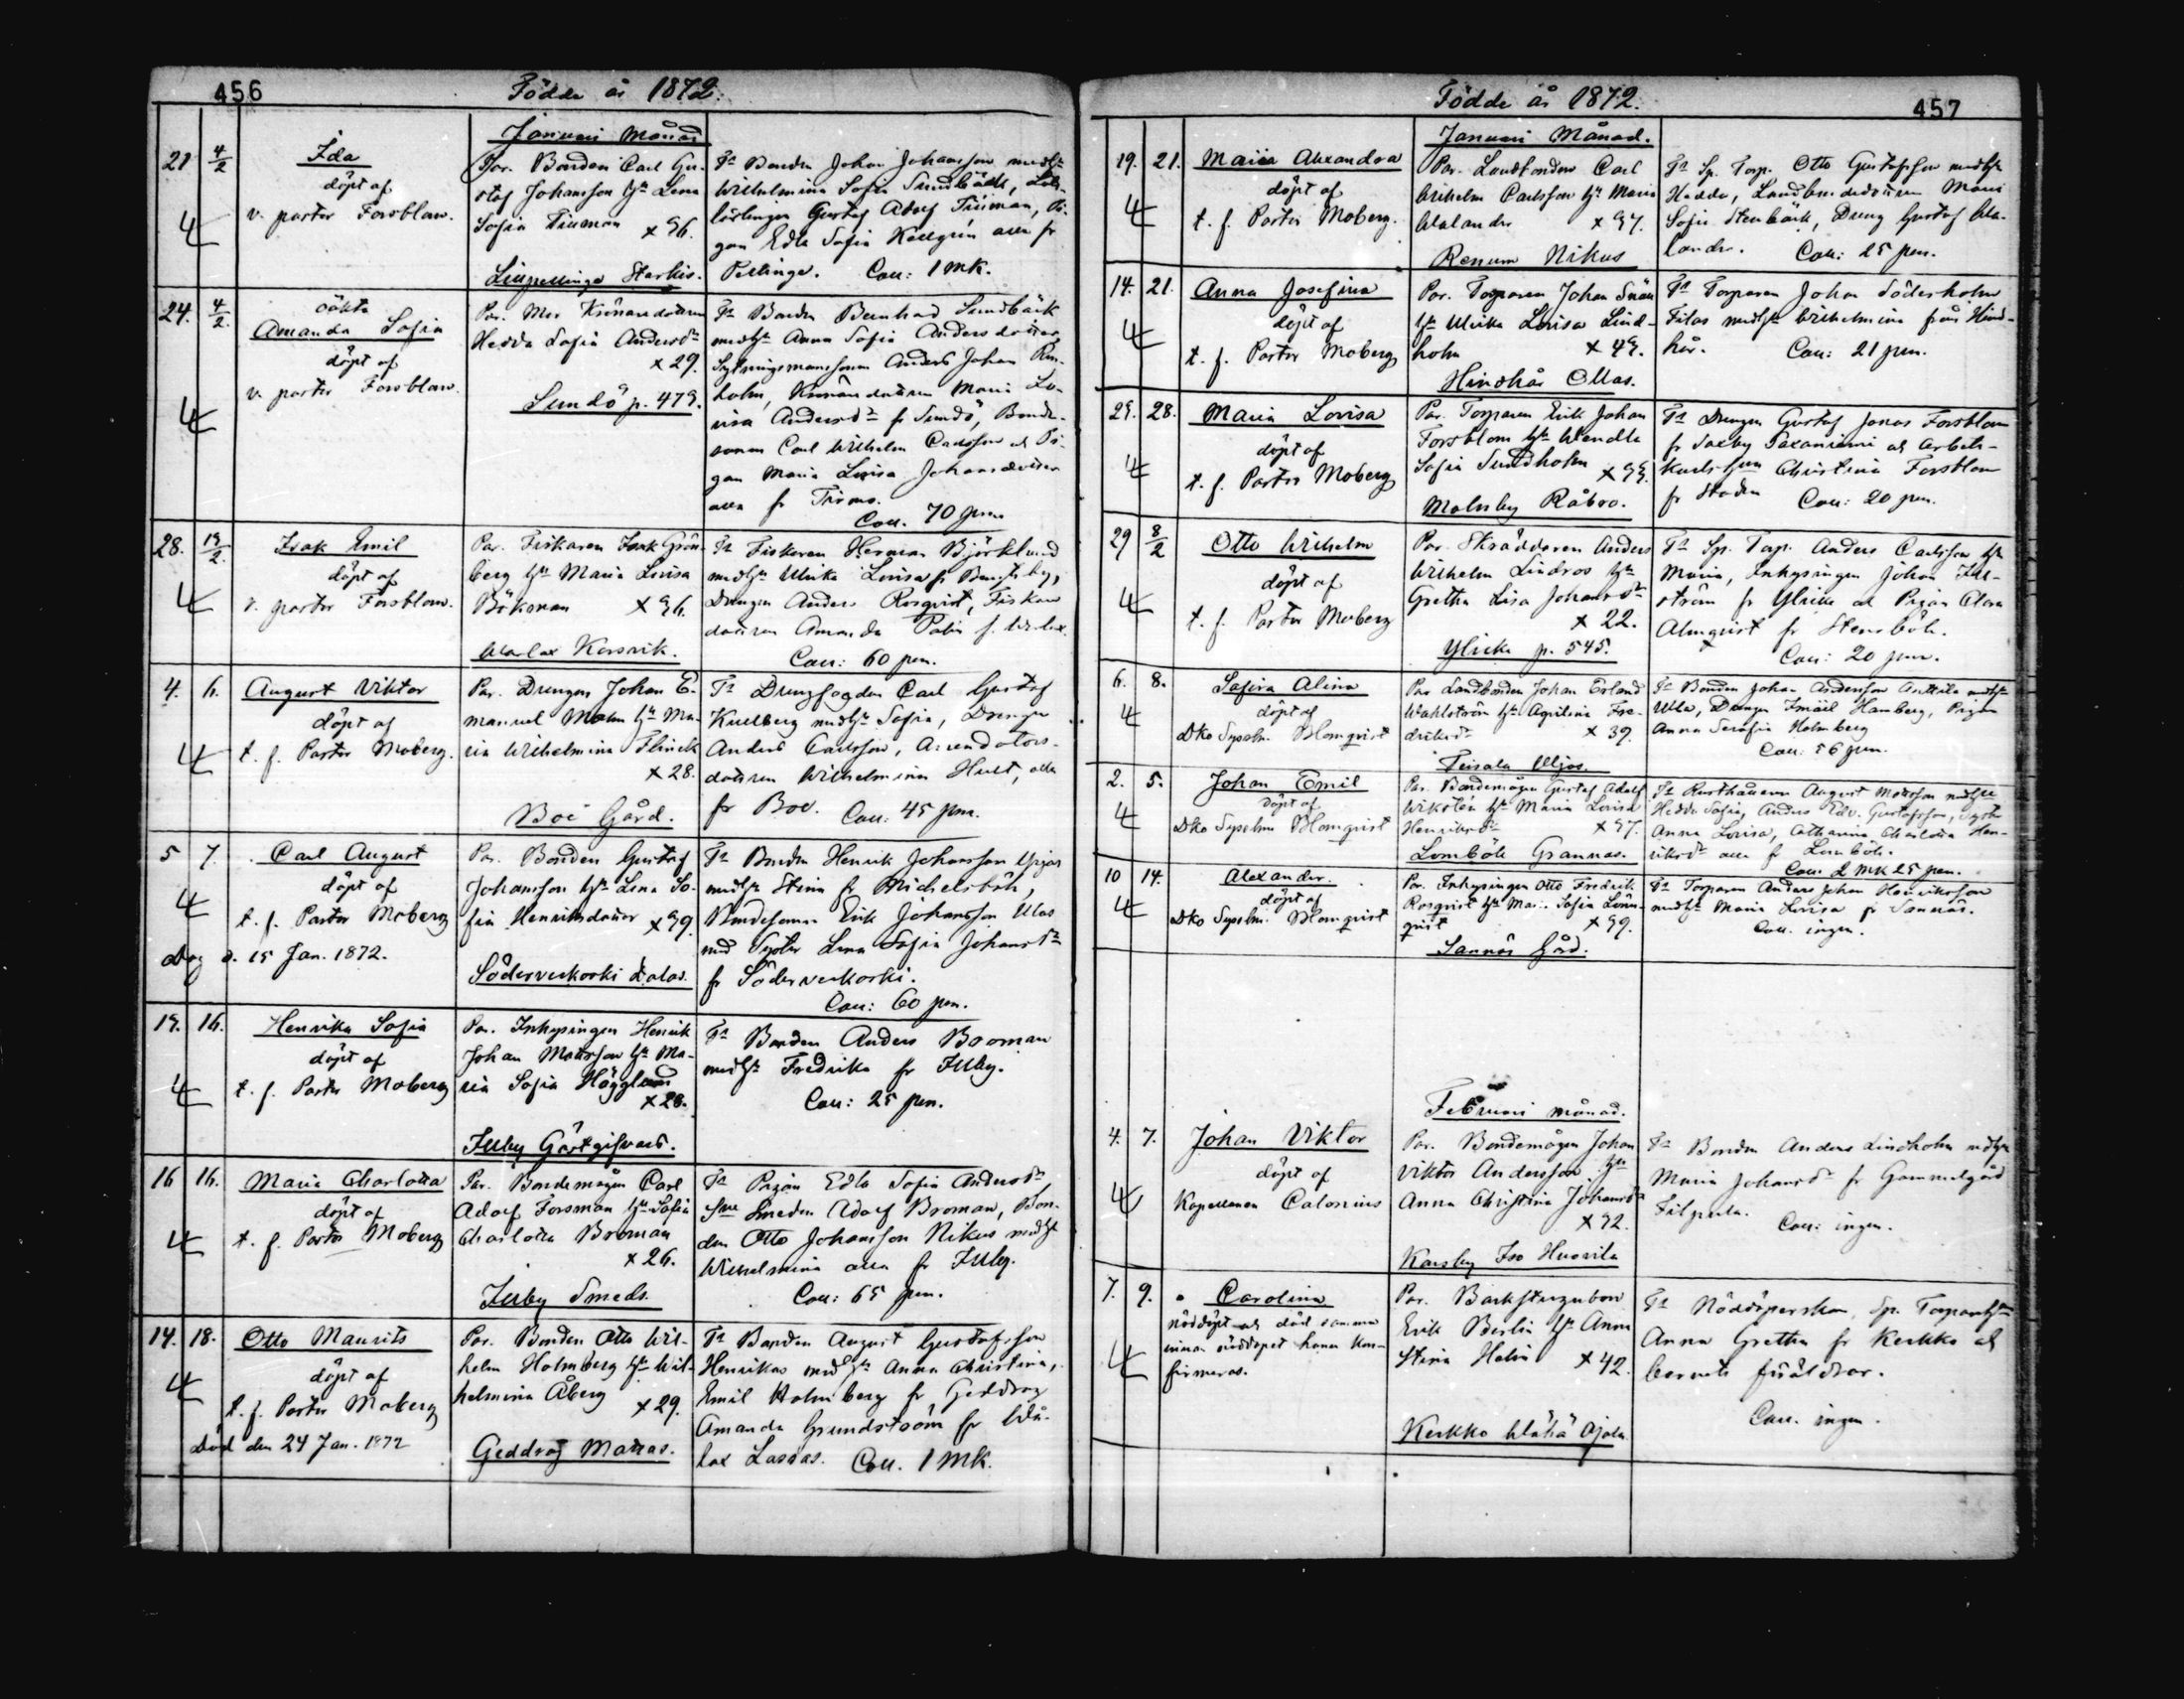 456
Födde år 1872.
Januari Månad
21 4/2
Ida
döpt af
v. pastor Forsblom.
Par. Bonden Carl Gu-
staf Johansson h:u Lena
Sofia Tillman x 36.
Lillpellinge Starkis.
Fa Bonden Johan Johansson med h:u
Wilhelmina Sofia Sundbäck, Lots-
lärlingen Gustaf Adolf Tillman, Pi-
gan Edla Sofia Kellgrén alla fr
Pellinge. Coll: 1 mk.
24. 4/2.
oäkta
Amanda Sofia
döpt af
v. pastor Forsblom.
Hedda Sofia Andersd:r
x 29.
Sundö p. 479.
Fa Bonden Bernhard Sundbäck
med h:u Anna Sofia Andersdotter,
Sytningsmanssonen Anders Johan
holm, dottren Maria Lo-
visa Andersd:r fr Sundö, Bonde-
sonen Carl Wilhelm Carlsson och Pi-
gan Maria Lovisa Johansdotter
alla fr Tirmo.
Coll. 70 pen.
28. 19/2.
Isak Emil
döpt af
v. pastor Forsblom.
Par. Fiskaren Isak Grön-
berg h:u Maria Lovisa
Bökman x 36.
Warlax Korsvik.
Fa Fiskaren Herman Björklund
med h:u Ulrika Lovisa fr
Drengen Anders Rosqvist, Fiskare
dottren Amanda
Coll: 60 pen.
4. 6.
August Viktor
döpt af
t. f. Pastor Moberg.
Par. Drengen Johan E-
manuel Malm h:u Ma-
ria Wilhelmina Flinck
x 28.
Boe Gård.
Fa Drengfogden Carl Gustaf
Kullberg med h:u Sofia, Drengen
Anders Carlsson, Arrendators-
dottren Wilhelmina Hult, alla
fr Boe. Coll: 45 pen.
5 7.
Carl August
döpt af
t. f. Pastor Moberg
Dog d. 15 Jan. 1872.
Par. Bonden Gustaf
Johansson h:u Lena So-
fia Henriksdotter x 39.
Söderveckoski Lalas.
Fa Bonden Henrik Johansson Yrjas
med h:u Stina fr Michelsböle,
Bondesonen Erik Johansson Ulas
med Syster Lena Sofia Johansd:r
fr Söderveckoski.
Coll: 60 pen.
19. 16.
Henrika Sofia
döpt af
t. f. Pastor Moberg
Par. Inhysingen Henrik
Johan Mattsson h:u Ma-
ria Sofia Hägglund
x 28.
Illby Gästgifvars.
Fa Bonden Anders Broman
med h:u Fredrika fr Illby.
Coll: 25 pen.
16 16.
Maria Charlotta
döpt af
t. f. Pastor Moberg
Par. Bondemågen Carl
Adolf Forsman h:u Sofia
Charlotta Broman
x 26.
Illby Smeds.
Fa Pigan Edla Sofia Andersd:r
Smeden Adolf Broman, Bon-
den Otto Johansson Nikus med h:u
Wilhelmina alla fr Illby.
Coll: 65 pen.
14. 18.
Otto Maurits
döpt af
t. f. Pastor Moberg
Död den 24 Jan. 1872
Par. Bonden Otto Wil-
helm Holmberg h:u Wil-
helmina Åberg x 29.
Geddrag Mattas.
Fa Bonden August Gustafsson
Henrikas med h:u Anna Christina,
Emil Holmberg fr Geddrag
Amanda Grundström fr Wå-
lax Lassas. Coll. 1 Mk.
457
Födde år 1872.
Januari Månad.
19. 21.
Maria Alexandra
döpt af
t. f. Pastor Moberg.
Par. Landbonden Carl
Wilhelm Carlsson h:u Maria
Walander x 37.
Renum Nikus
Fa Sp. Torp. Otto Gustafsson med h:u
Hedda, Landbondedottren Maria
Sofia Stenbäck, Dreng Gustaf Wa-
lander. Coll: 25 pen.
14. 21.
Anna Josefina
döpt af
t. f. Pastor Moberg
Par. Torparen Johan Snäll
h:u Ulrika Lovisa Lind-
holm x 43.
Hindhår Ollas.
Fa Torparen Johan Söderholm
Filas med h:u Wilhelmina från Hind-
hår. Coll: 21 pen.
29. 28.
Maria Lovisa
döpt af
t. f. Pastor Moberg
Par. Torparen Erik Johan
Forsblom h:u Wendla
Sofia Sundholm x 33.
Molnby Råbro.
Fa Drengen Gustaf Jonas Forsblom
fr Saxby Saxaniemi och Arbets-
karls h:un Christina Forsblom
fr Staden Coll: 20 pen.
29 8/2
Otto Wilhelm
döpt af
t. f. Pastor Moberg
Par. Skräddaren Anders
Wilhelm Lindros h:u
Gretha Lisa Johansd:r
x 22.
Ylike p. 545.
Fa Sp. Torp. Anders Carlsson h:u
Maria, Inhysingen Johan
ström fr Ylike och Pigan Clara
Almqvist fr Stensböle.
Coll: 20 pen.
6. 8.
Safira Alina
döpt af
Dko Sysslm. Blomqvist
Par Landbonden Johan Erland
Wahlström h:u Agilina Fre-
driksd:r x 39.
Teisala Uljas.
Fa Bonden Johan Andersson Anttila med h:u
Ulla, Drengen Ismaël Hamberg, Pigan
Anna Serafia Holmberg
Coll: 56 pen.
2. 5.
Johan Emil
döpt af
Dko Sysslm Blomqvist
Par. Bondemågen Gustaf Adolf
Wikstén h:u Maria Lovisa
Henriksd:r x 37.
Lomböle Grannas.
Fa Rusthållaren August Mattsson med h:u
Hedda Sofia, Anders Edv. Gustafsson, Syst.
Anna Lovisa, Catharina Charlotta Hen-
riksd:r alla fr Lomböle.
Coll: 2 mk 25 pen.
10 14.
Alexander.
döpt af
Dko Sysslm. Blomqvist
Par. Inhysingen Otto Fredrik
Rosqvist h:u Maria Sofia Lönn-
qvist x 39.
Sannäs Gård.
Fa Torparen Anders Johan Henriksson
med h:u Maria Lovisa fr Sannäs.
Coll. ingen.
Februari månad.
4. 7.
Johan Viktor
döpt af
Kapellanen Calonius
Par. Bondemågen Johan
Viktor Andersson h:u
Anna Christina Johansd:r
x 32.
Karsby Iso Huovila
Fa Bonden Anders Lindholm med h:u
Maria Johansd:r fr Gammelgård
Filpula.
Coll: ingen.
7. 9.
Carolina
nöddöpt och död samma
innan nöddopet hann kon-
firmeras.
Par.
Erik Berlin h:u Anna
Stina Helin x 42.
Kerkko Wähä Ajola
Fa Nöddöperskan, Sp. Torpareh:un
Anna Gretha fr Kerkko och
barnets föräldrar.
Coll. ingen.